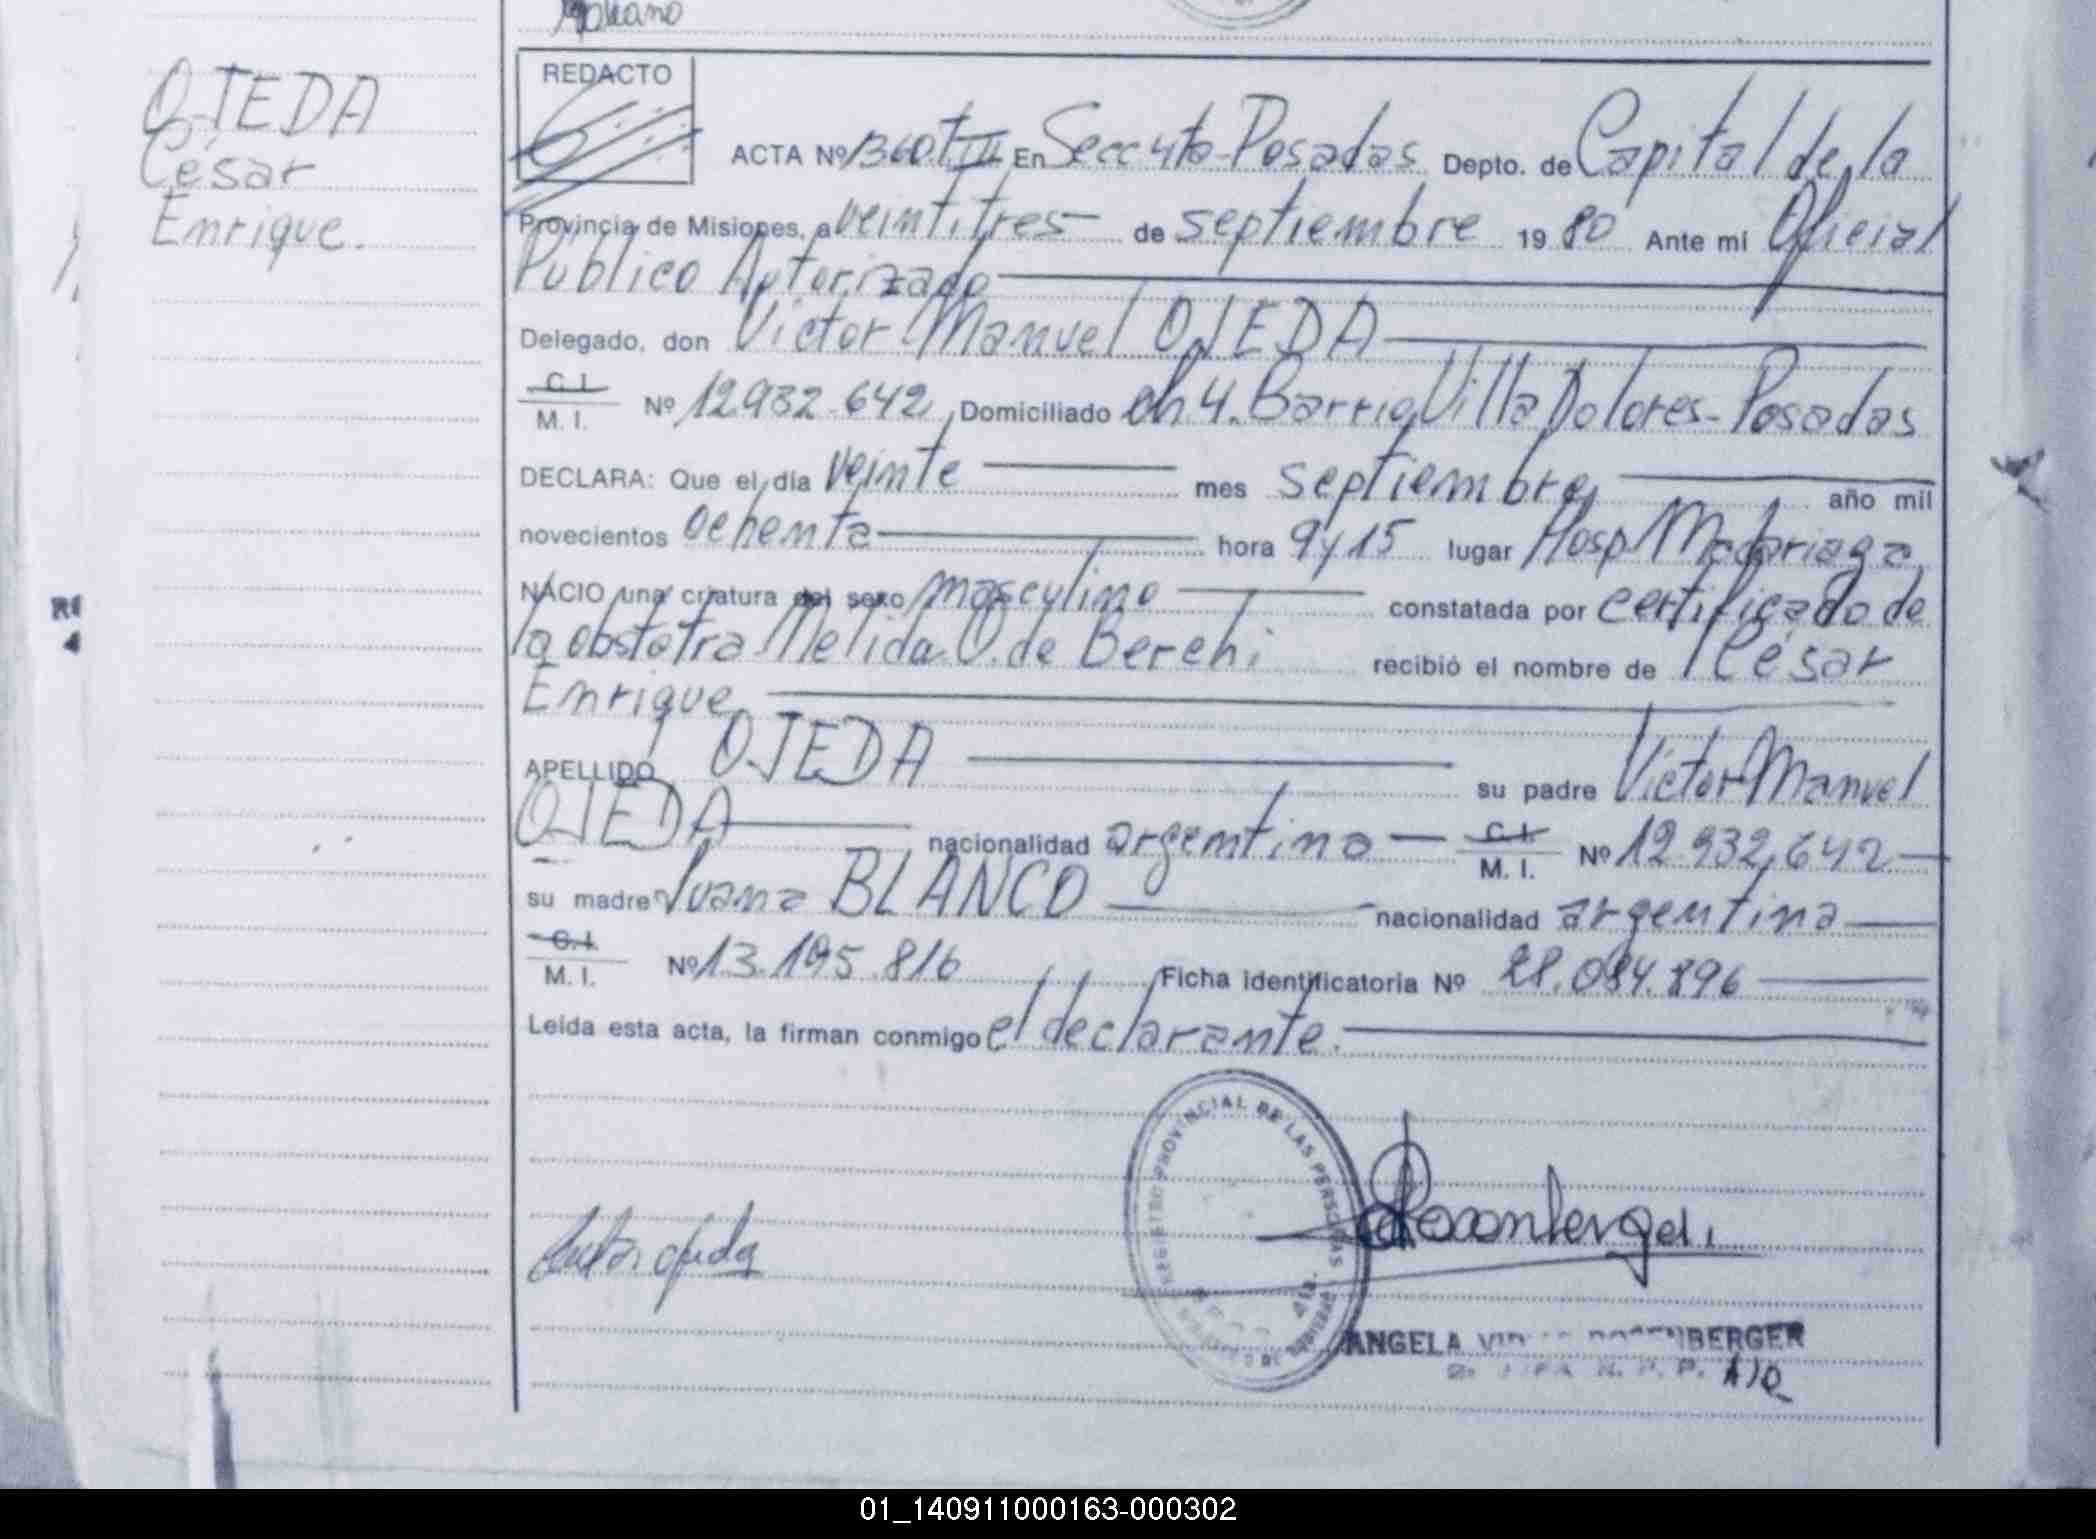 OJEDA
César
Enrique.
REDACTO
ACTA Nº 1360 T III En Secc 4ta - Posadas Depto. de Capital de la
Provincia de Misiones, a veintitres de septiembre 1980 Ante mi Oficial
Público Autorizado
Delegado, don Victor Manuel OJEDA
C. I.
M. I. Nº 12.932.642 Domiciliado ch 4. Barrio Villa Dolores - Posadas
DECLARA: Que el día veinte mes septiembre año mil
novecientos ochenta hora 9 y 15 lugar Hosp Madariaga
NACIO una criatura del sexo masculino constatada por certificado de
la obstetra Nelida O. de Berchi recibió el nombre de César
Enrique
APELLIDO OJEDA su padre Victor Manuel
OJEDA nacionalidad argentino C. I.
M. I. Nº 12.932.642
su madre Juana BLANCO nacionalidad argentina
C. I.
M. I. Nº 13.195.816 Ficha identificatoria Nº 28.084.896
Leída esta acta, la firman conmigo el declarante.
REGISTRO PROVINCIAL DE LAS PERSONAS
ANGELA ROSENBERGER
01_140911000163-000302